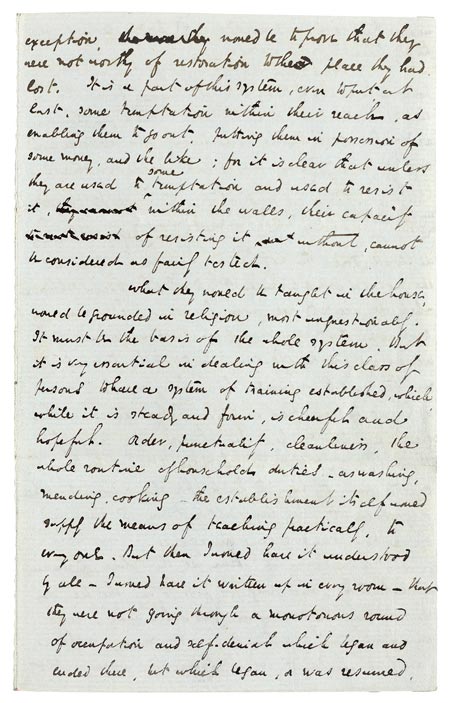 exception, would be to prove that they
were not worthy of restoration to the place they had
lost. It is a part of this system, even to put at
last, some temptation within their reach, as
enabling them to go out, putting them in possession of
some money, and the like; for it is clear that unless
they are used to some temptation and used to resist
it, within the walls, their capacity
of resisting it without, cannot
be considered as fairly tested.
What they would be taught in the house,
would be grounded in religion, most unquestionably.
It must be the basis of the whole system. But
it is very essential in dealing with this class of
persons to have a system of training established, which,
while it is steady and firm, is cheerful and
hopeful. Order, punctuality, cleanliness, the
whole routine of household duties - as washing,
mending, cooking - the establishment itself would
supply the means of teaching practically, to
every one. But then I would have it understood
by all - I would have it written up in every room - that
they were not going through a monotonous round
of occupation and self-denial which began and
ended there, but which began, or was resumed,